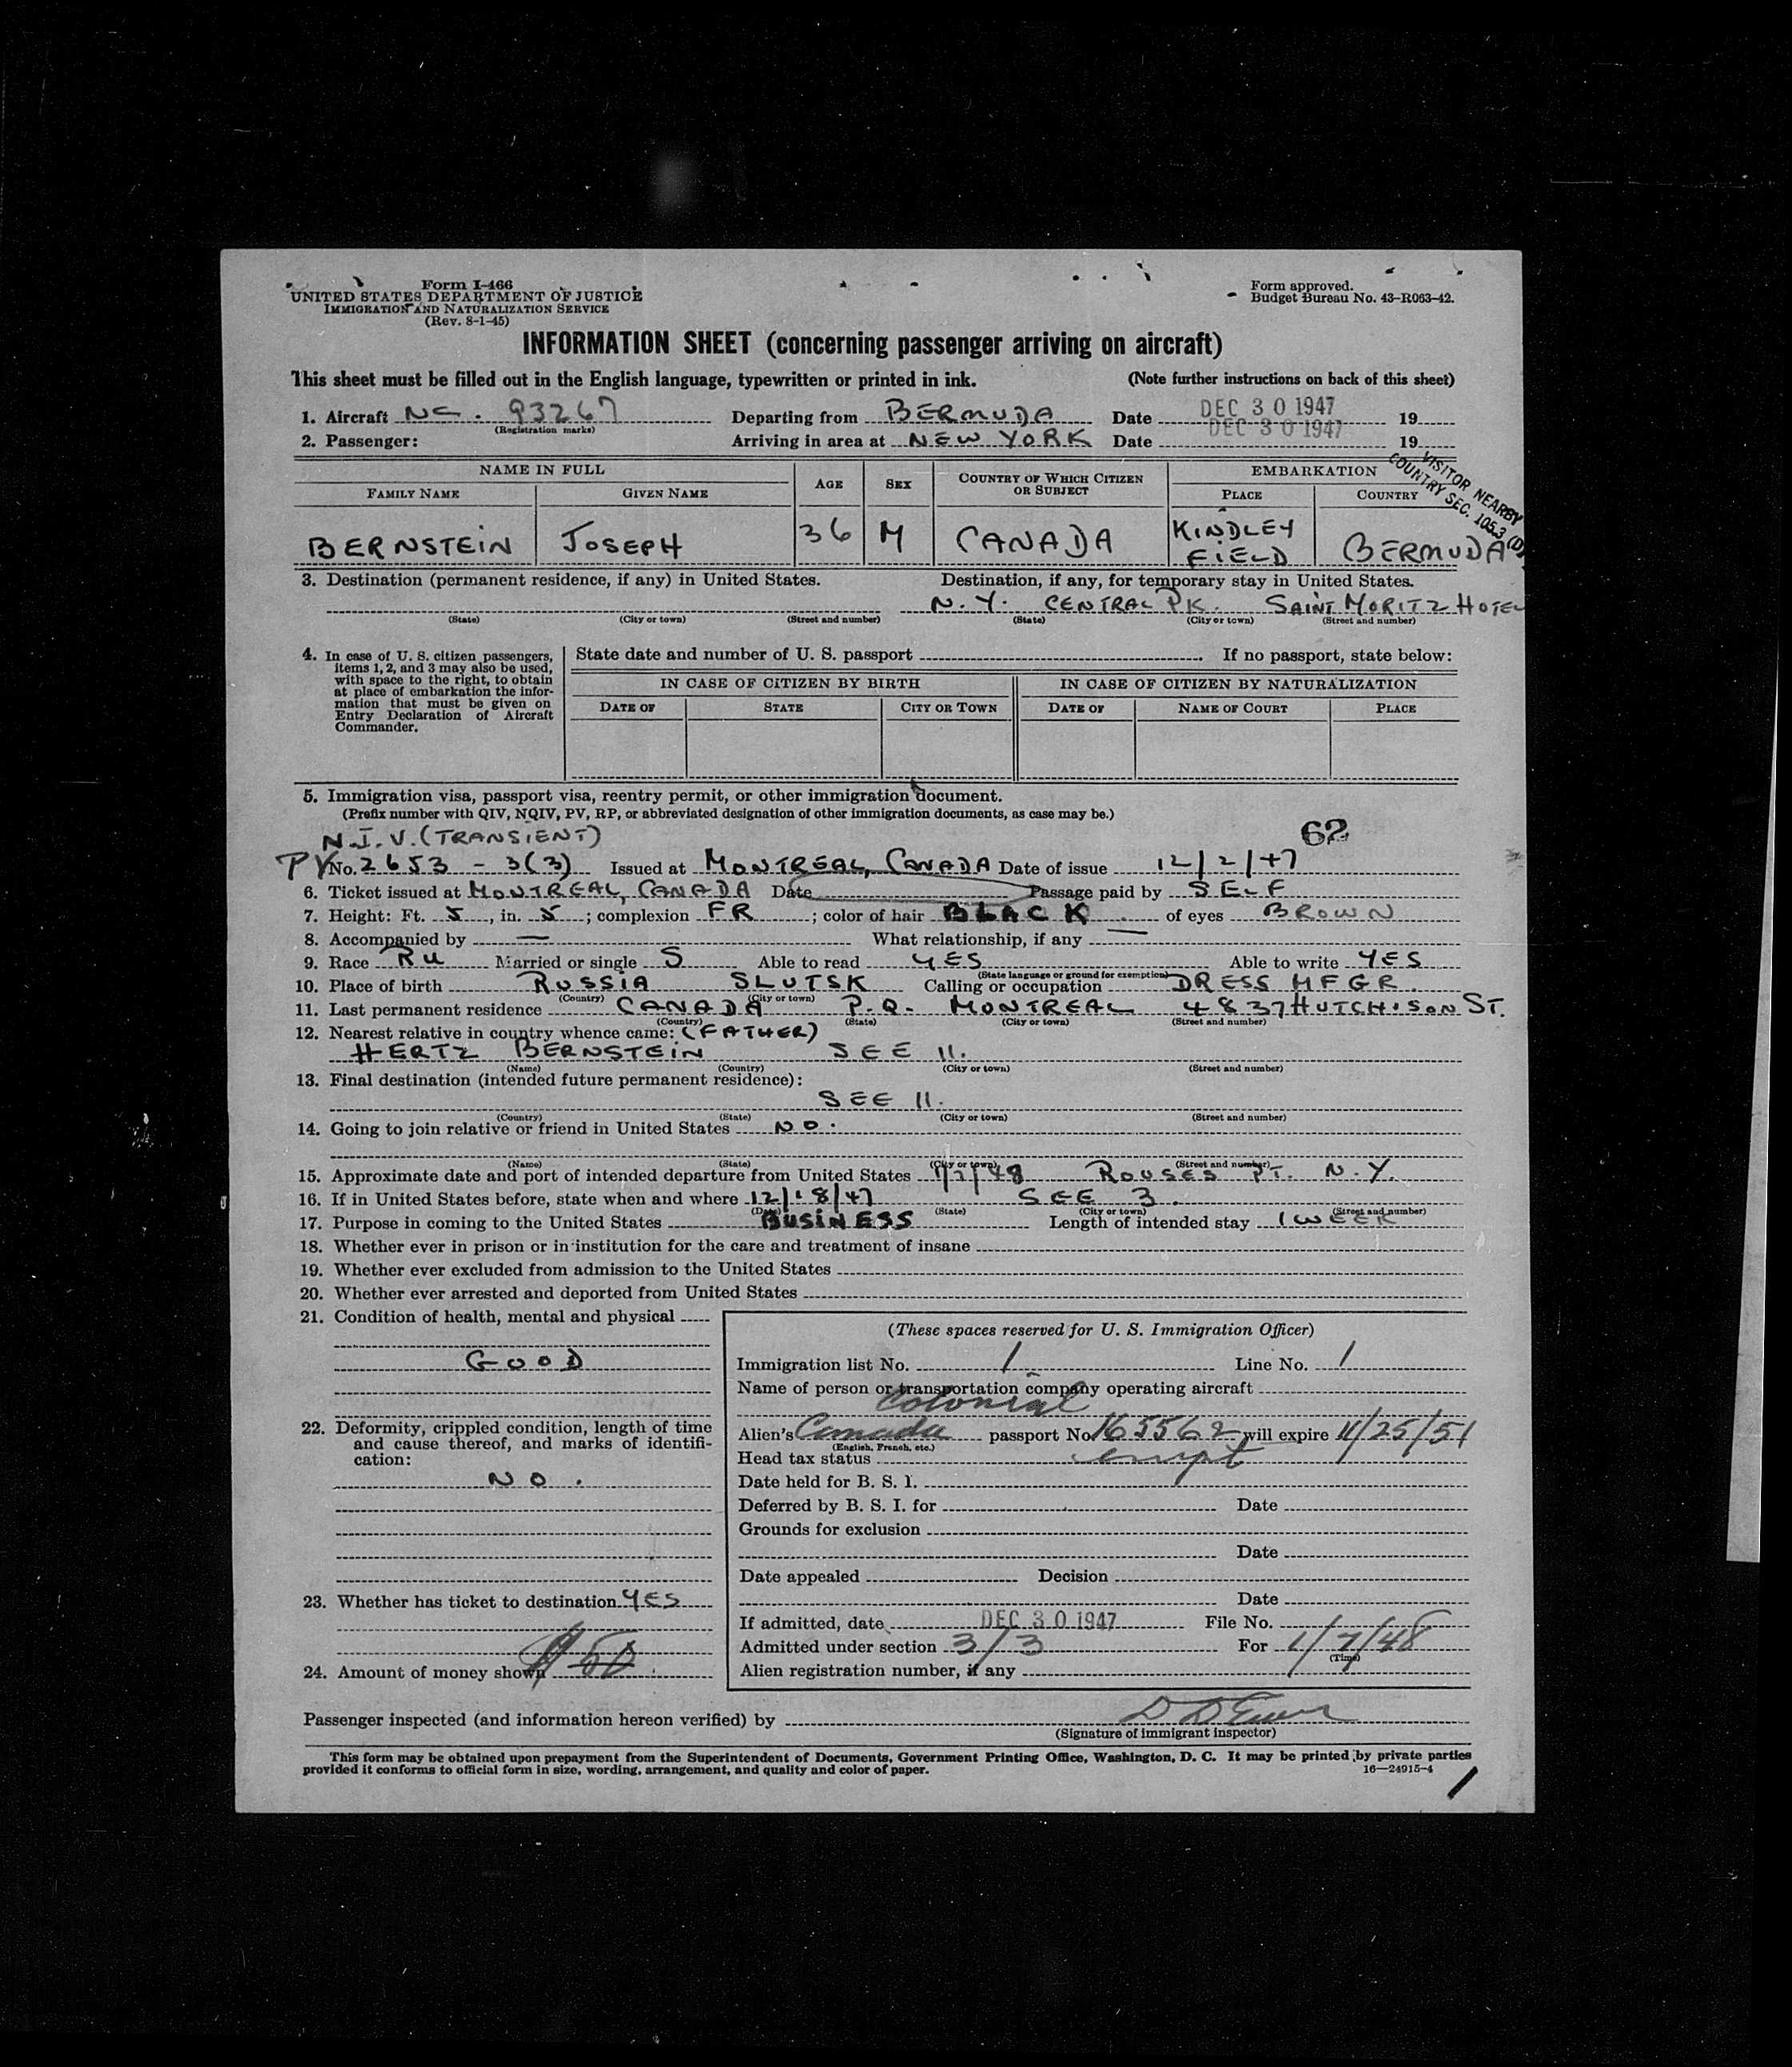 Form I-466
UNITED STATES DEPARTMENT OF JUSTICE
IMMIGRATION AND NATURALIZATION SERVICE
(Rev. 8-1-45)
Form approved.
Budget Bureau No. 43-R063-42.
INFORMATION SHEET (concerning passenger arriving on aircraft)
This sheet must be filled out in the English language, typewritten or printed in ink. (Note further instructions on back of this sheet)
1. Aircraft NC. 93267 Departing from BERMUDA Date DEC 30 1947 19
(Registration marks)
2. Passenger: Arriving in area at NEW YORK Date DEC 30 1947 19
VISITOR NEARBY
COUNTRY SEC. 105.3 (D)
NAME IN FULL AGE SEX COUNTRY OF WHICH CITIZEN OR SUBJECT EMBARKATION
FAMILY NAME GIVEN NAME PLACE COUNTRY
BERNSTEIN JOSEPH 36 M CANADA KINDLEY FIELD BERMUDA
3. Destination (permanent residence, if any) in United States. Destination, if any, for temporary stay in United States.
N.Y. CENTRAL PK. SAINT MORITZ HOTEL
(State) (City or town) (Street and number) (State) (City or town) (Street and number)
4. In case of U. S. citizen passengers, items 1, 2, and 3 may also be used, with space to the right, to obtain at place of embarkation the information that must be given on Entry Declaration of Aircraft Commander.
State date and number of U. S. passport . If no passport, state below:
IN CASE OF CITIZEN BY BIRTH IN CASE OF CITIZEN BY NATURALIZATION
DATE OF STATE CITY OR TOWN DATE OF NAME OF COURT PLACE
5. Immigration visa, passport visa, reentry permit, or other immigration document.
(Prefix number with QIV, NQIV, PV, RP, or abbreviated designation of other immigration documents, as case may be.)
N.I.V. (TRANSIENT) 62
PV No. 2653 - 3(3) Issued at MONTREAL, CANADA Date of issue 12/2/47
6. Ticket issued at MONTREAL, CANADA Date Passage paid by SELF
7. Height: Ft. 5, in. 5; complexion FR; color of hair BLACK of eyes BROWN
8. Accompanied by — What relationship, if any —
9. Race RU Married or single S Able to read YES Able to write YES
(State language or ground for exemption)
10. Place of birth RUSSIA SLUTSK Calling or occupation DRESS MFGR.
(Country) (City or town)
11. Last permanent residence CANADA P.Q. MONTREAL 4837 HUTCHISON ST.
(Country) (State) (City or town) (Street and number)
12. Nearest relative in country whence came: (FATHER)
HERTZ BERNSTEIN SEE 11.
(Name) (Country) (City or town) (Street and number)
13. Final destination (intended future permanent residence):
SEE 11.
(Country) (State) (City or town) (Street and number)
14. Going to join relative or friend in United States NO.
(Name) (State) (City or town) (Street and number)
15. Approximate date and port of intended departure from United States 1/7/48 ROUSES PT. N.Y.
16. If in United States before, state when and where 12/18/47 SEE 3.
(Date) (State) (City or town) (Street and number)
17. Purpose in coming to the United States BUSINESS Length of intended stay 1 WEEK
18. Whether ever in prison or in institution for the care and treatment of insane
19. Whether ever excluded from admission to the United States
20. Whether ever arrested and deported from United States
21. Condition of health, mental and physical
GOOD
22. Deformity, crippled condition, length of time and cause thereof, and marks of identification:
NO.
23. Whether has ticket to destination YES
24. Amount of money shown $50
(These spaces reserved for U. S. Immigration Officer)
Immigration list No. 1 Line No. 1
Name of person or transportation company operating aircraft
Colonial
Alien's Canada passport No. 165562 will expire 11/25/51
(English, French, etc.)
Head tax status exempt
Date held for B. S. I.
Deferred by B. S. I. for Date
Grounds for exclusion
Date
Date appealed Decision
Date
If admitted, date DEC 30 1947 File No.
Admitted under section 3/3 For 1/7/48
(Time)
Alien registration number, if any
Passenger inspected (and information hereon verified) by
(Signature of immigrant inspector)
This form may be obtained upon prepayment from the Superintendent of Documents, Government Printing Office, Washington, D. C. It may be printed by private parties
provided it conforms to official form in size, wording, arrangement, and quality and color of paper. 16—24915-4